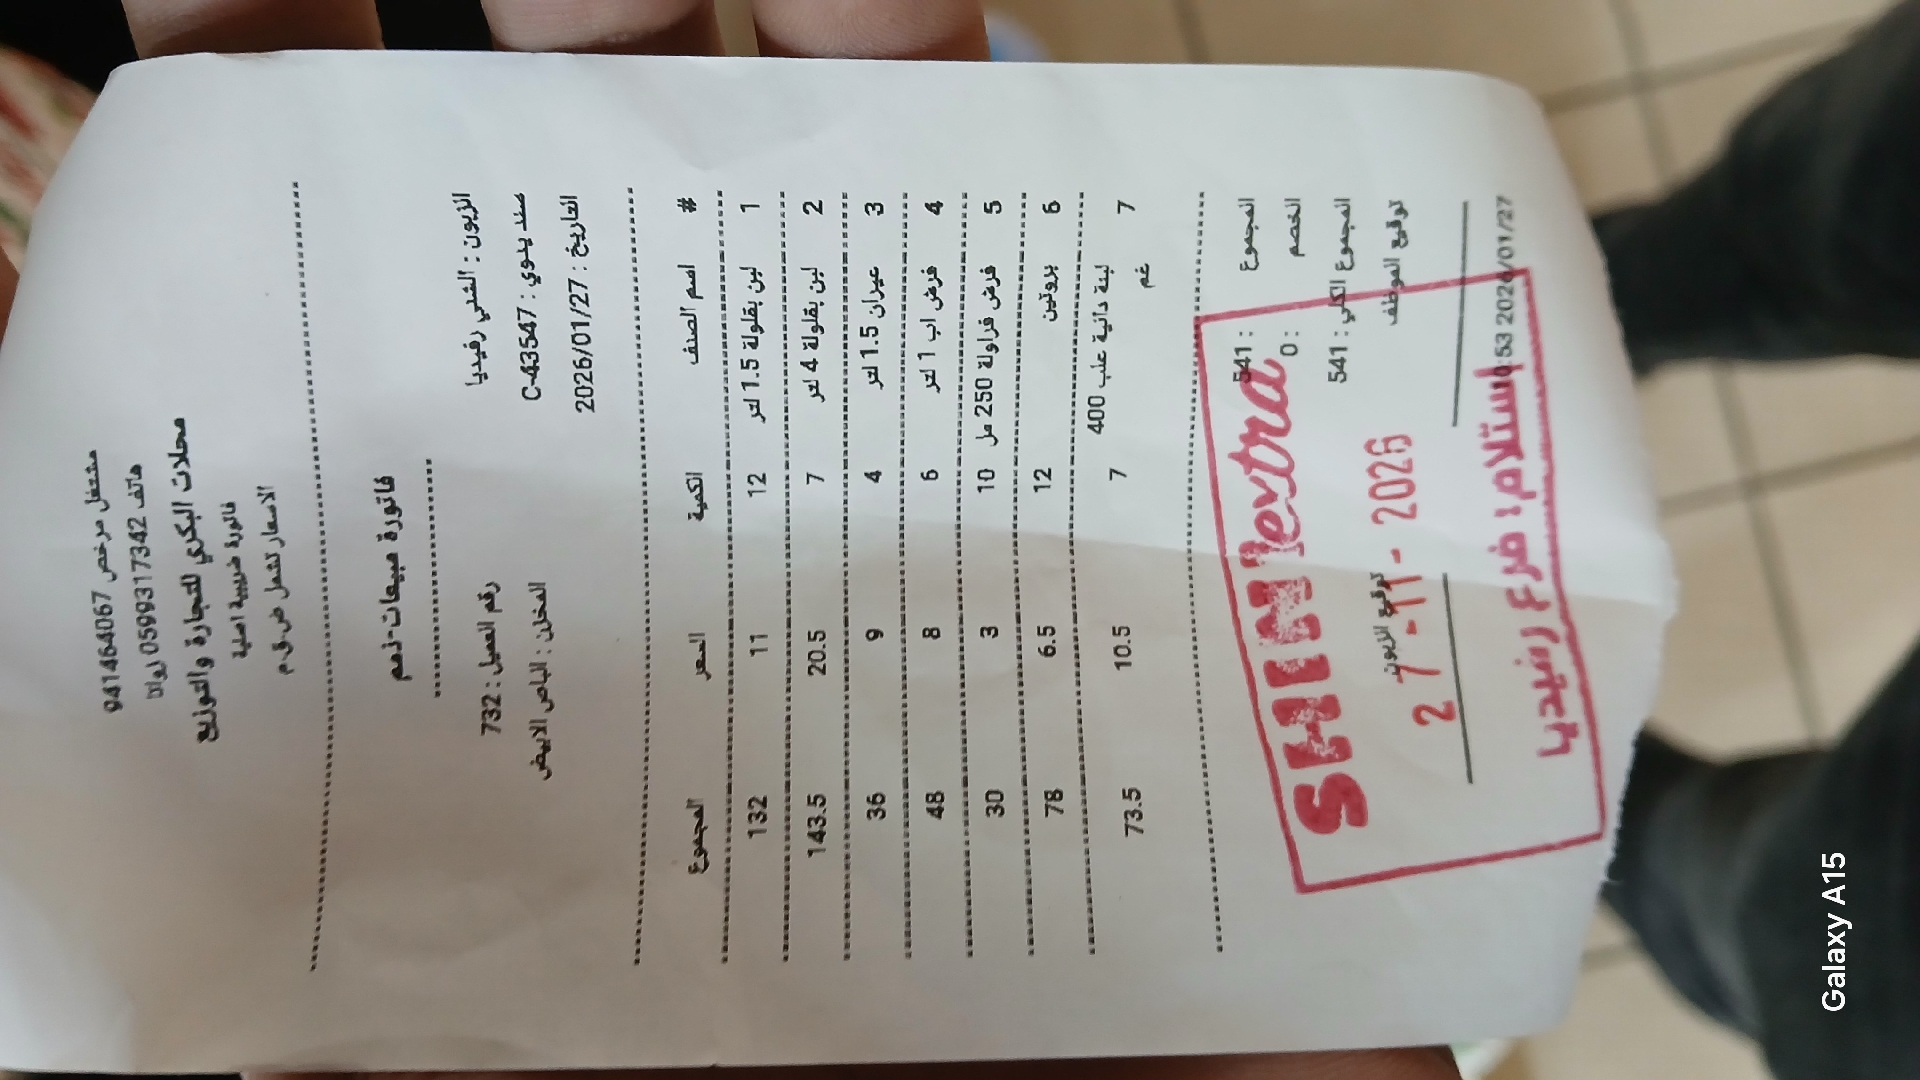 مشتغل مرخص 941464067
هاتف 0599317342 روانا
محلات البكري للتجارة والتوزيع
فاتورة ضريبية اصلية
الاسعار تشمل ض.ق.م
فاتورة مبيعات-ذمم
الزبون : الشني رفيديا رقم العميل : 732
سند يدوي : C-43547 المخزن : الباص الابيض
التاريخ : 2026/01/27
# اسم الصنف الكمية السعر المجموع
1 لبن بقلولة 1.5 لتر 12 11 132
2 لبن بقلولة 4 لتر 7 20.5 143.5
3 عيران 1.5 لتر 4 9 36
4 فرش اب 1 لتر 6 8 48
5 فرش فراولة 250 مل 10 3 30
6 بروتين 12 6.5 78
7 لبنة دانية علب 400 7 10.5 73.5
غم
المجموع : 541
الخصم : 0
المجموع الكلي : 541
توقيع الموظف توقيع الزبون
:53 2026/01/27
SHINI extra
27-11-2026
إستلام : فرع رفيديا
Galaxy A15